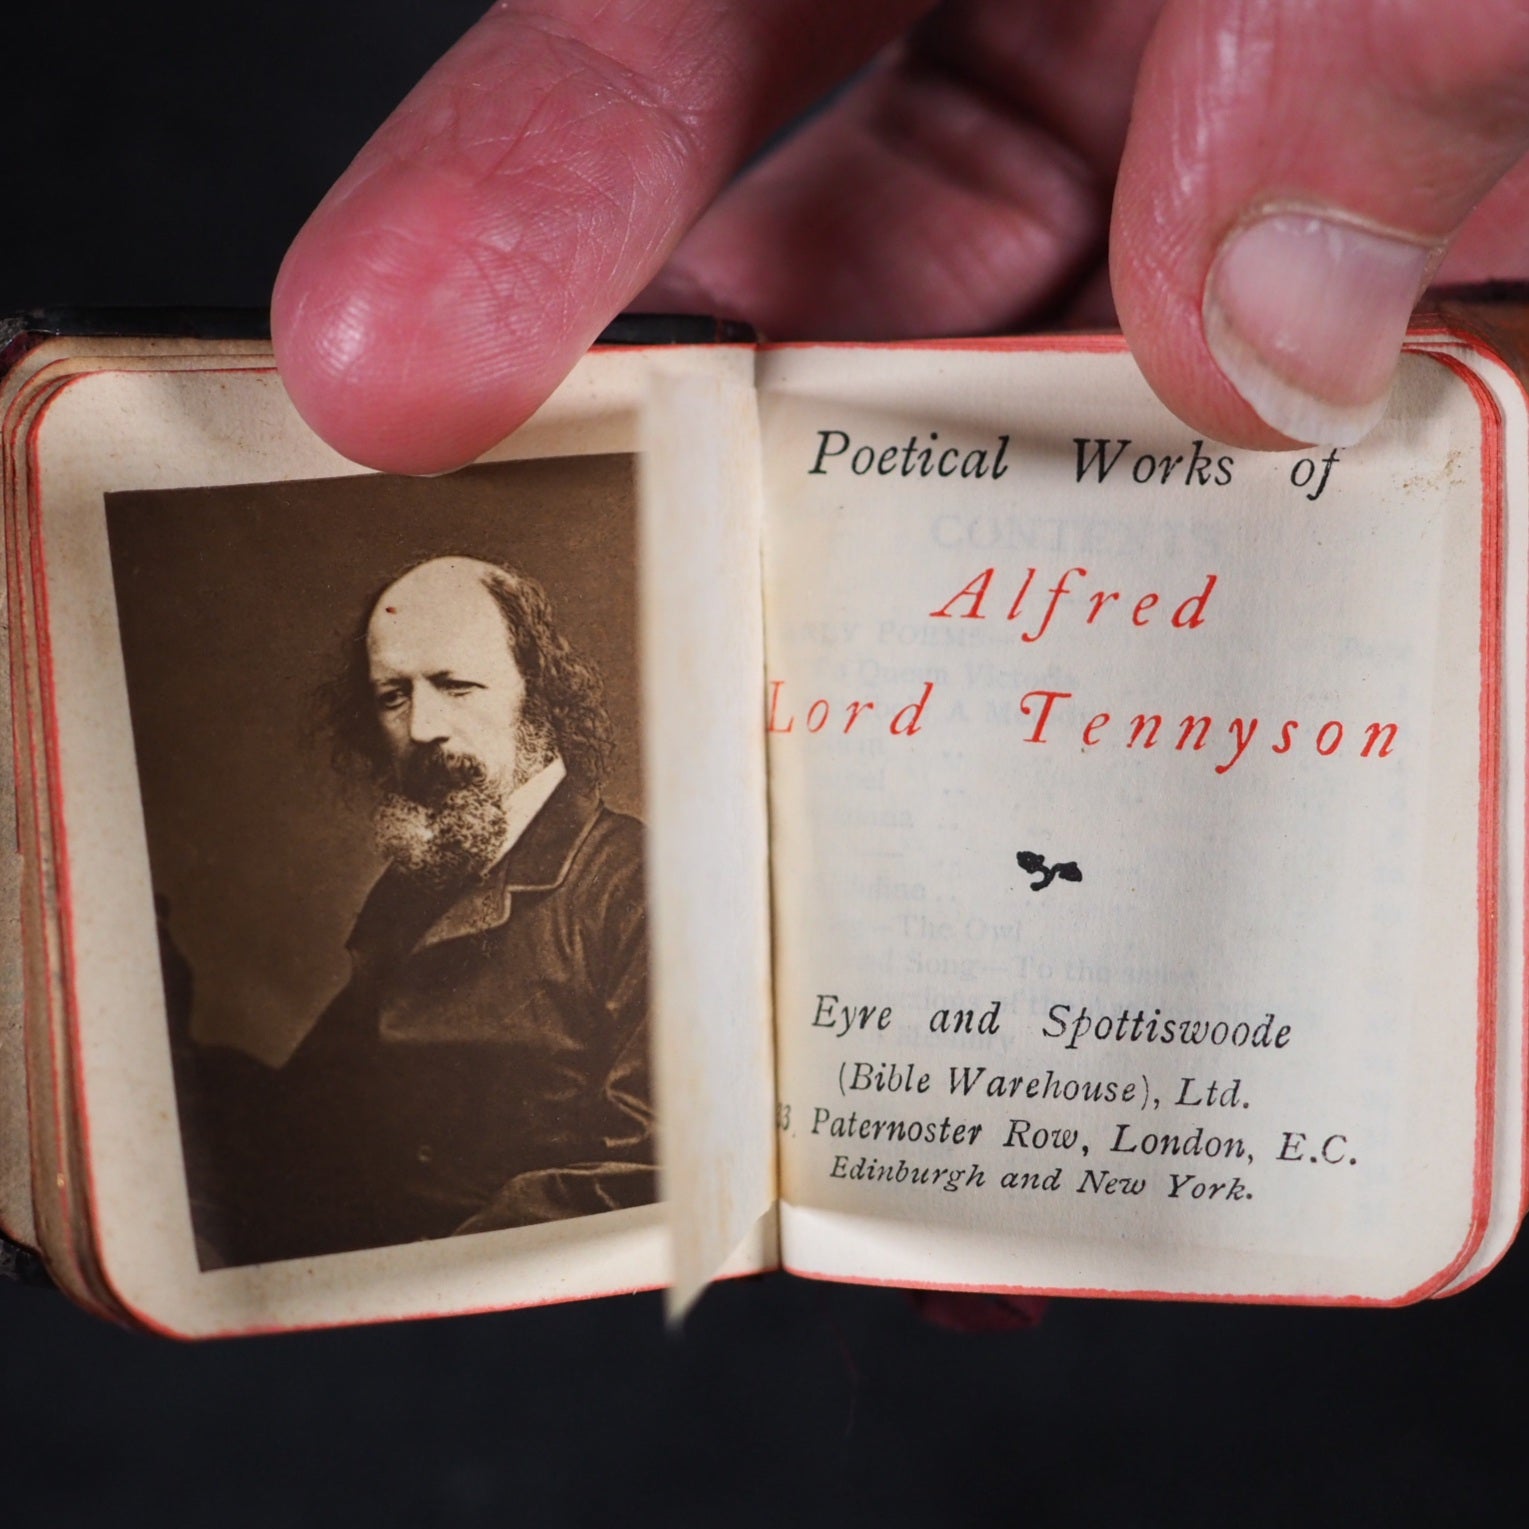 Poetical Works of
Alfred
Lord Tennyson
Eyre and Spottiswoode
(Bible Warehouse), Ltd.
Paternoster Row, London, E.C.
Edinburgh and New York.